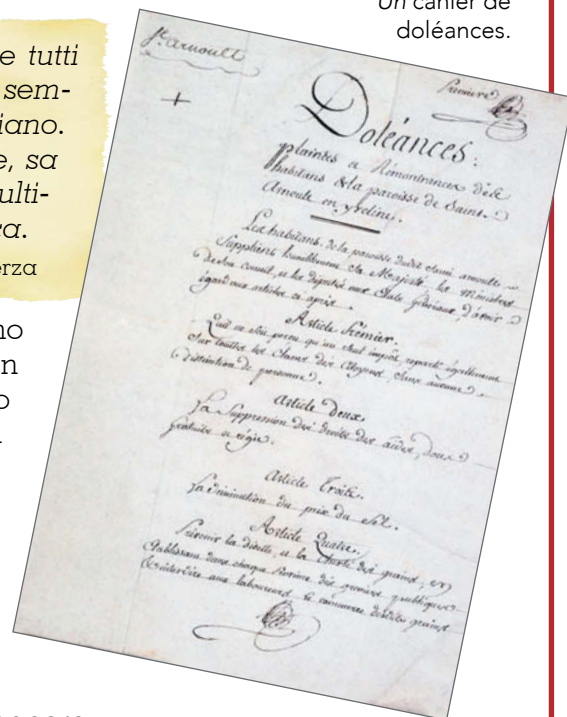 Un cahier de
doléances.
e tutti
sem-
iano.
e, sa
ulti-
ca.
erza
no
n
o
St. Arnoult
Premiere
Doléances:
plaintes et Rémontrances dèle
habitans de la paroisse de Saint.
Arnoult en yveline.
Les habitans de la paroisse dudit saint arnoult
Supplient humblement Sa Majesté, les Ministres
de Son Conseil, et les députés aux Etats Généraux, d'avoir
égard aux articles ci après.
Article Prémier.
Qu'il ne Soit perçu qu'un Seul impôt reparti également
Sur touttes les Classes des Citoyens, Sans aucune
Distinction de personne.
Article Deux.
La Suppression des droits des aides, Doux
Gratuits et régie.
Article Troite.
La Diminution du prix du Sel.
Article Quatre.
Prévenir la disette, et la Cherté des grains, en
Etablissant dans chaque Province des greniers publiques
Interdire aux laboureurs le commerce desdits grains